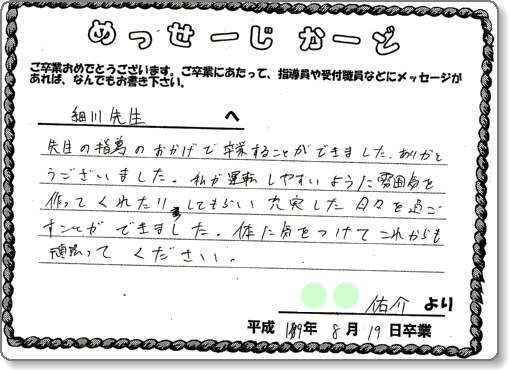 めっせーじかーど
ご卒業おめでとうございます。ご卒業にあたって、指導員や受付職員などにメッセージが
あれば、なんでもお書き下さい。
細川先生 へ
先生の指導のおかげで卒業することができました。ありがと
うございました。私が運転しやすいように雰囲気を
作ってくれたり してもらい 充実した日々を過ご
すことができました。体に気をつけてこれからも
頑張ってください。
佑介 より
平成 年 8月19日卒業